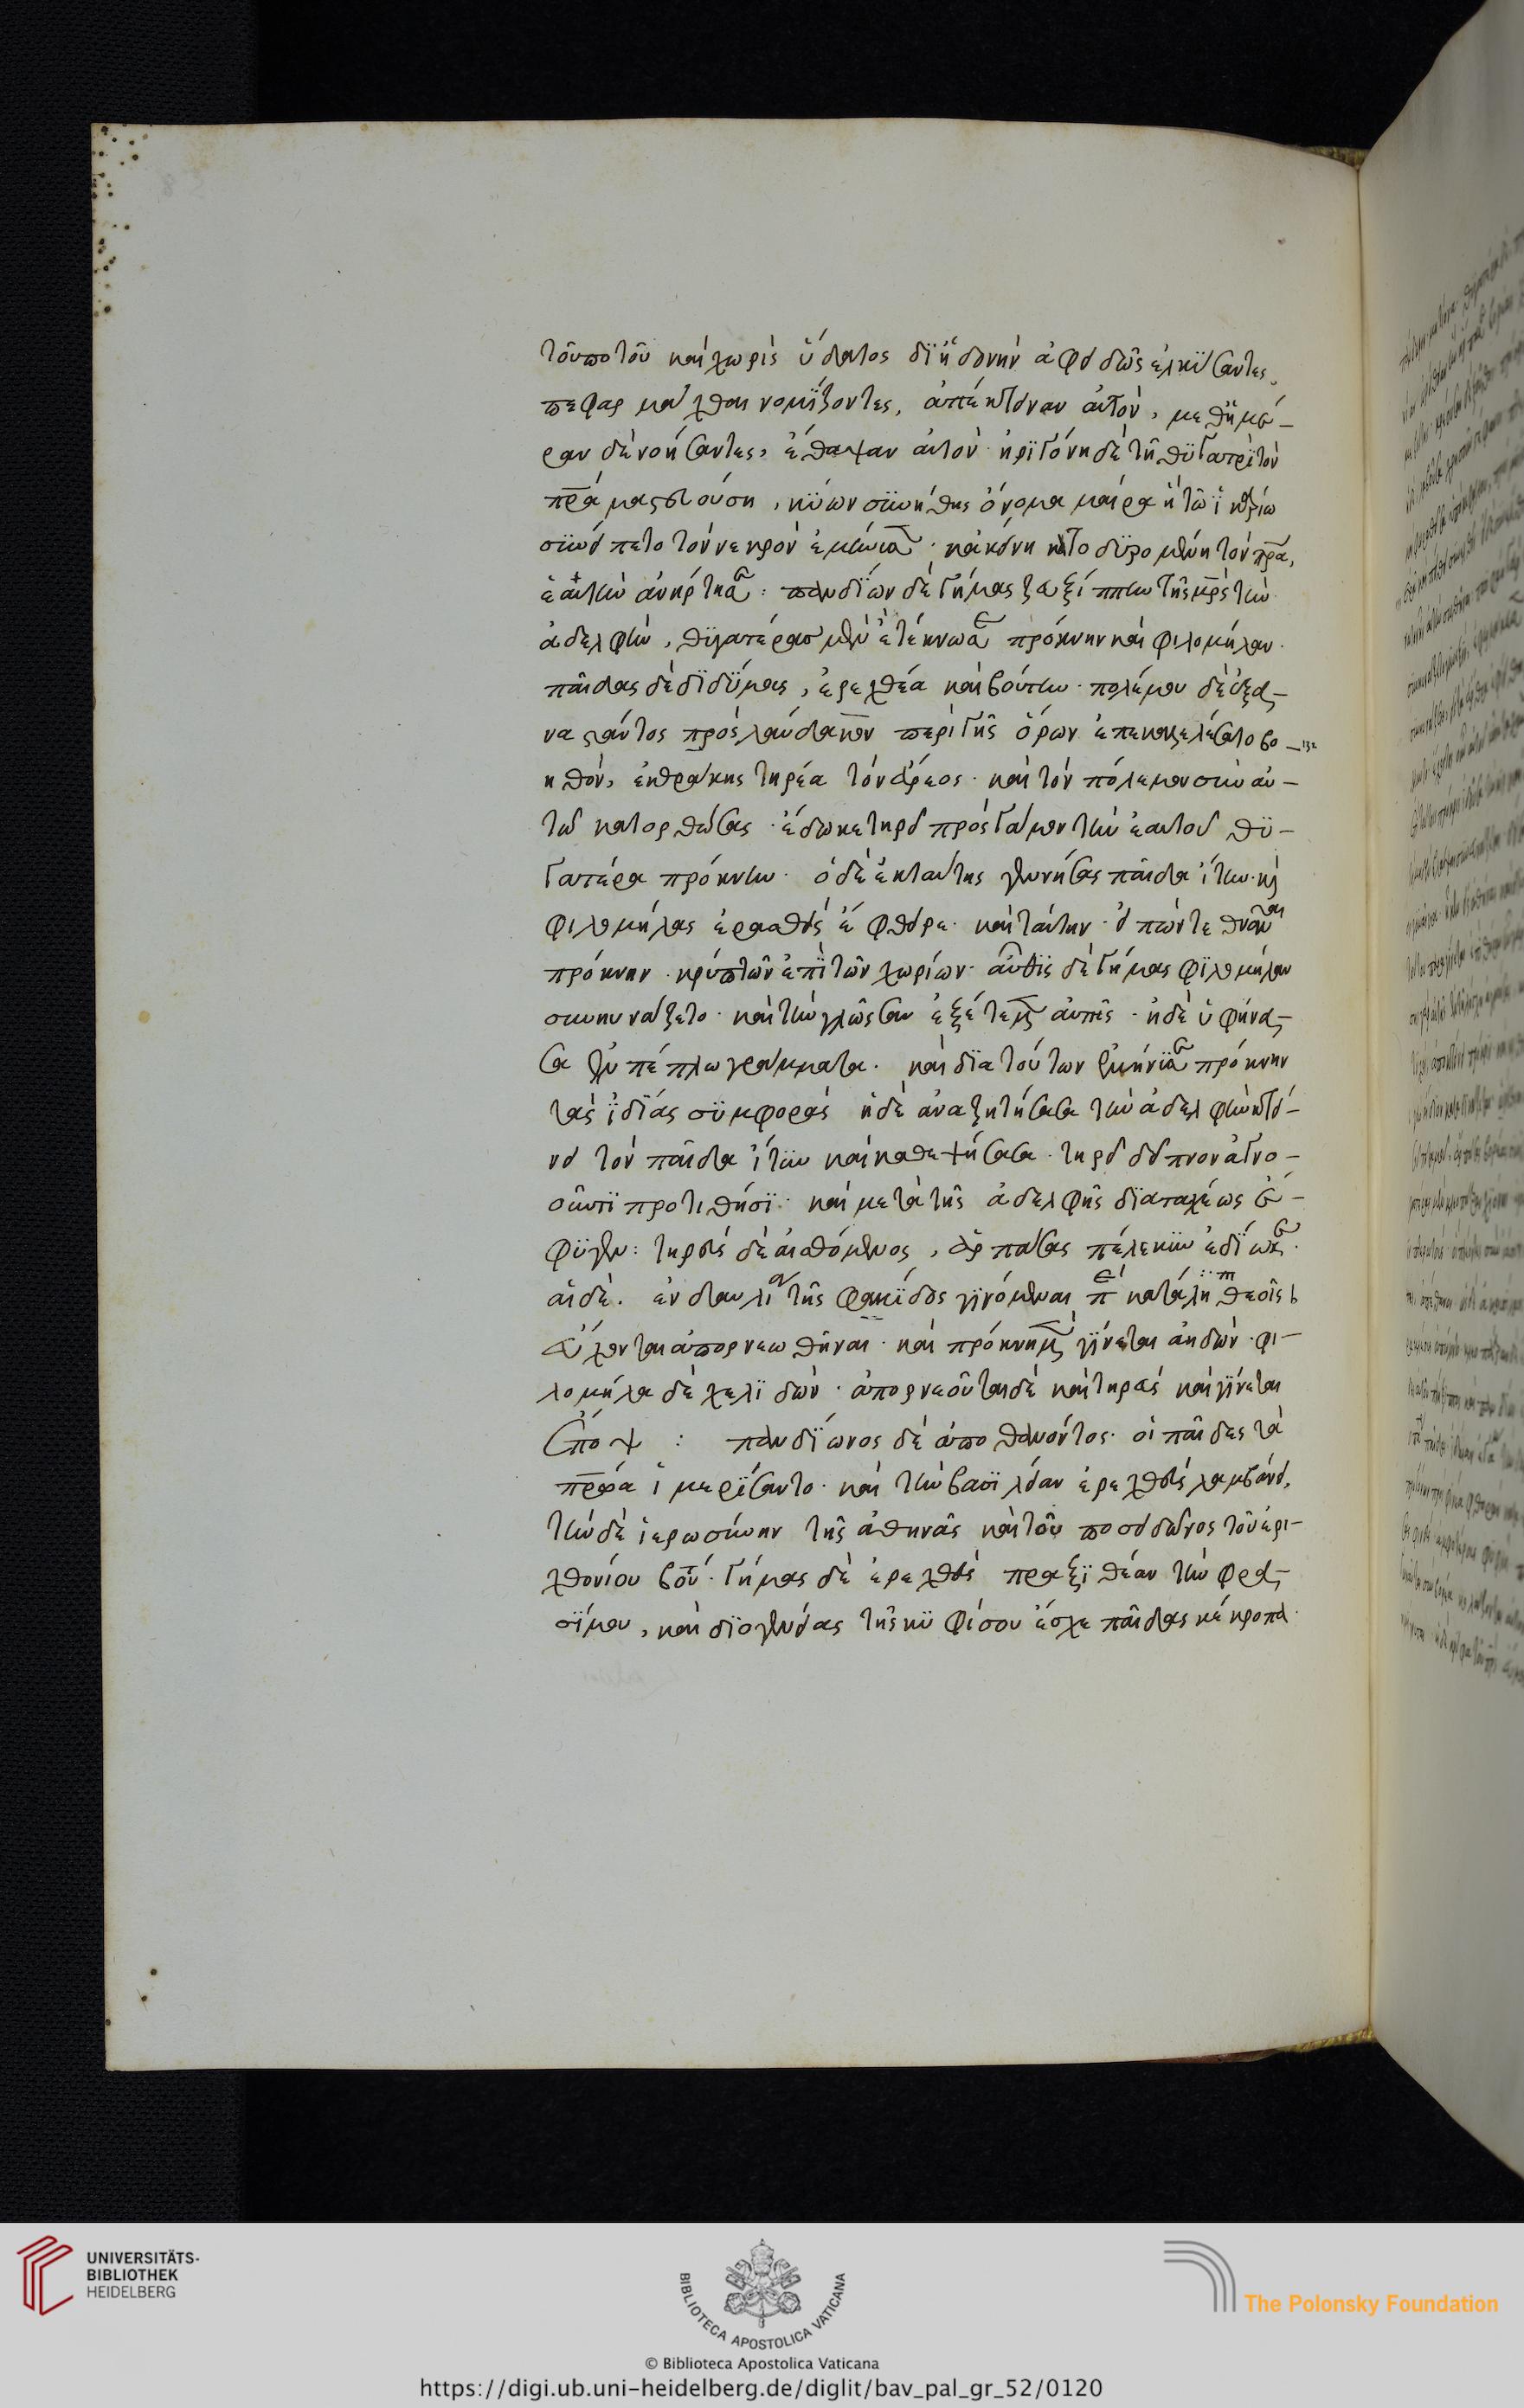 τοῦ ποτοῦ καὶ χωρὶς ὕδατος δι' ἡδονὴν ἀφειδῶς ἑλκύσαντες,
πεφαρμάχθαι νομίζοντες, ἀπέκτειναν αὐτόν, μεθημέ-
ραν δὲ νοήσαντες, ἔθαψαν αὐτόν· ἠριγόνη δὲ τῇ θυγατρὶ τὸν
πρα μαστευούση, κύων συνήθης ὄνομα μαίρα ἣ τῶ ἰκαρίω
συνείπετο τὸν νεκρὸν ἐμήνυσε· κἀκείνη κατοδυρομένη τὸν πρα,
ἑαυτὴν ἀνήρτησε: πανδίων δὲ γήμας ζευξίππην τῆς μρς τὴν
ἀδελφήν, θυγατέρας μὲν ἐτέκνωσε πρόκνην καὶ φιλομήλαν·
παῖδας δὲ διδύμας, ἐρεχθέα καὶ βούτην· πολέμου δὲ ἐξα-
ναστάντος πρὸς λαύδακον περὶ γῆς ὅρων ἐπεκαλέσατο βο-
ηθόν, ἐκ θράκης τηρέα τὸν ἄρεος· καὶ τὸν πόλεμον σὺν αὐ-
τῶ κατορθώσας· ἔδωκε τηρεῖ πρὸς γάμον τὴν ἑαυτοῦ θυ-
γατέρα πρόκνην· ὁ δὲ ἐκ ταύτης γεννήσας παῖδα ἴτυν· καὶ
φιλομήλας ἐρασθεὶς ἔφθειρε· καὶ ταύτην· εἰπών τεθνάναι
πρόκνην· κρύπτων ἐπὶ τῶν χωρίων· αὖθις δὲ γήμας φιλομήλαν
συνηυνάζετο· καὶ τὴν γλῶσσαν ἐξέτεμεν αὐτῆς· ἡ δὲ ὑφήνα-
σα ἐν πέπλω γράμματα· καὶ διὰ τούτων ἐμήνυσε πρόκνην
τὰς ἰδίας συμφοράς ἡ δὲ ἀναζητήσασα τὴν ἀδελφὴν κτεί-
νει τὸν παῖδα ἴτυν καὶ καθεψήσασα· τηρεῖ δεῖπνον ἀγνο-
οῦντι προτιθησι· καὶ μετὰ τῆς ἀδελφῆς διαταχέως ἔ-
φυγεν: τηρεὺς δὲ αἰσθόμενος, ἁρπάσας πέλεκυν ἐδίωκεν·
αἱ δὲ. ἐν δαυλία τῆς φωκίδος γινόμεναι π κατάλη θεοῖς
εὔχονται ἀπορνεωθῆναι· καὶ πρόκνη μὲν γίνεται ἀηδών· φι-
λομήλα δὲ χελιδών· ἀπορνεοῦται δὲ καὶ τηρεύς καὶ γίνεται
ἔποψ : πανδίωνος δὲ ἀποθανόντος· οἱ παῖδες τὰ
πρῶα ἐμερίσαντο· καὶ τὴν βασιλείαν ἐρεχθεὺς λαμβάνει,
τὴν δὲ ἱερωσύνην τῆς ἀθηνᾶς καὶ τοῦ ποσειδῶνος τοῦ ἐρι-
χθονίου βού· γήμας δὲ ἐρεχθεὺς πραξιθέαν τὴν φρα-
σίμου, καὶ διογενείας τῆς κυφίσου ἔσχε παῖδας κέκροπα·
UNIVERSITÄTS-
BIBLIOTHEK
HEIDELBERG
BIBLIOTECA APOSTOLICA VATICANA
The Polonsky Foundation
© Biblioteca Apostolica Vaticana
https://digi.ub.uni-heidelberg.de/diglit/bav_pal_gr_52/0120